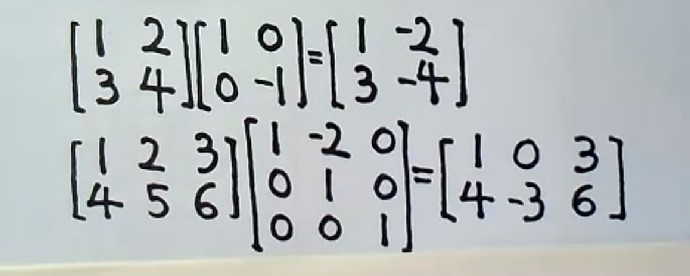 [1 2; 3 4][1 0; 0 -1]=[1 -2; 3 -4]
[1 2 3; 4 5 6][1 -2 0; 0 1 0; 0 0 1]=[1 0 3; 4 -3 6]